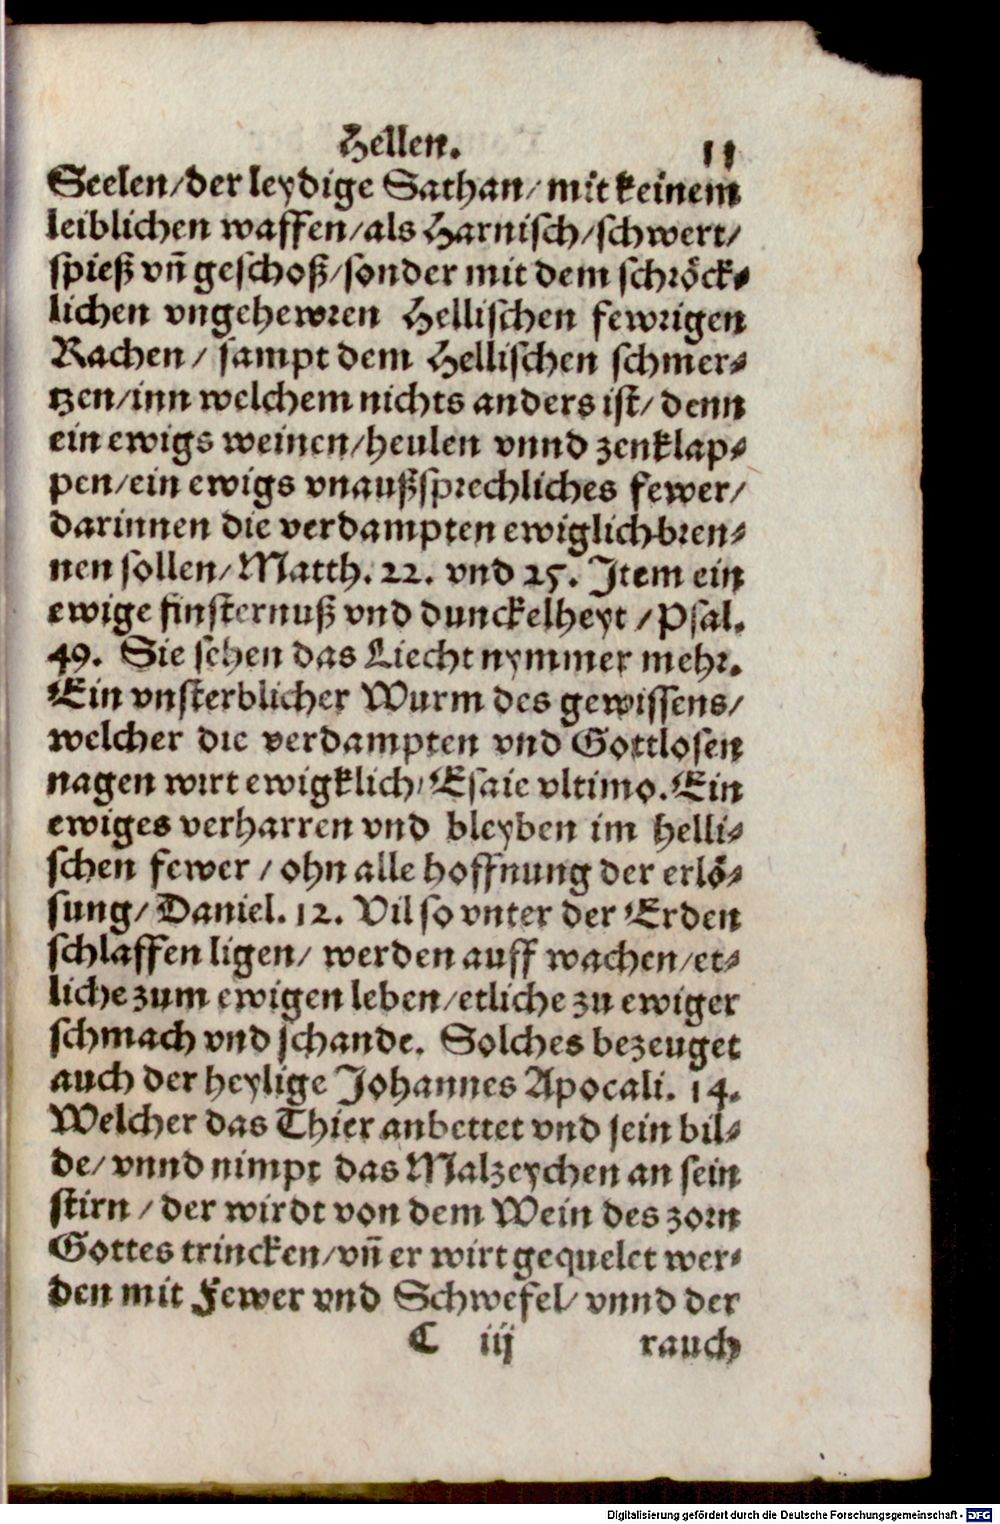 Hellen. 11
Seelen/der leydige Sathan/ mit keinem
leiblichen waffen/als Harnisch/schwert/
spieß vñ geschoß/sonder mit dem schröck-
lichen vngehewren Hellischen fewrigen
Rachen/ sampt dem Hellischen schmer-
tzen/inn welchem nichts anders ist/ denn
ein ewigs weinen/heulen vnnd zenklap-
pen/ein ewigs vnaußsprechliches fewer/
darinnen die verdampten ewiglich bren-
nen sollen/ Matth. 22. vnd 25. Jtem ein
ewige finsternuß vnd dunckelheyt / Psal.
49. Sie sehen das Liecht nymmer mehr.
Ein vnsterblicher Wurm des gewissens/
welcher die verdampten vnd Gottlosen
nagen wirt ewigklich/ Esaie vltimo. Ein
ewiges verharren vnd bleyben im helli-
schen fewer / ohn alle hoffnung der erlö-
sung/ Daniel. 12. Vil so vnter der Erden
schlaffen ligen/ werden auff wachen/et-
liche zum ewigen leben/etliche zu ewiger
schmach vnd schande. Solches bezeuget
auch der heylige Johannes Apocali. 14.
Welcher das Thier anbettet vnd sein bil-
de/ vnnd nimpt das Malzeychen an sein
stirn / der wirdt von dem Wein des zorn
Gottes trincken/vñ er wirt gequelet wer-
den mit Fewer vnd Schwefel/ vnnd der
C iij rauch
Digitalisierung gefördert durch die Deutsche Forschungsgemeinschaft - DFG